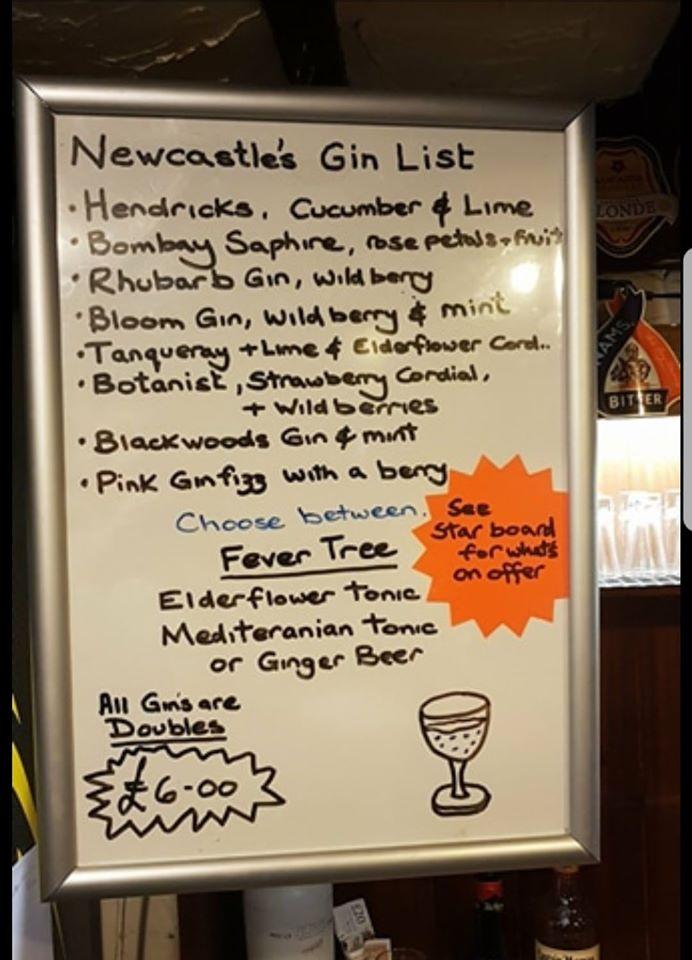 Newcastle's Gin List
• Hendricks, Cucumber & Lime
• Bombay Saphire, rose petals + fruit
• Rhubarb Gin, wild berry
• Bloom Gin, Wild berry & mint
• Tanqueray + Lime & Elderflower Cord..
• Botanist, Strawberry Cordial,
+ Wild berries
• Blackwoods Gin & mint
• Pink Gin fizz with a berry
Choose between.
Fever Tree
Elderflower Tonic
Mediteranian Tonic
or Ginger Beer
See
Star board
for what's
on offer
All Gins are
Doubles
£6-00
LONDE
AMS
BITTER
£20